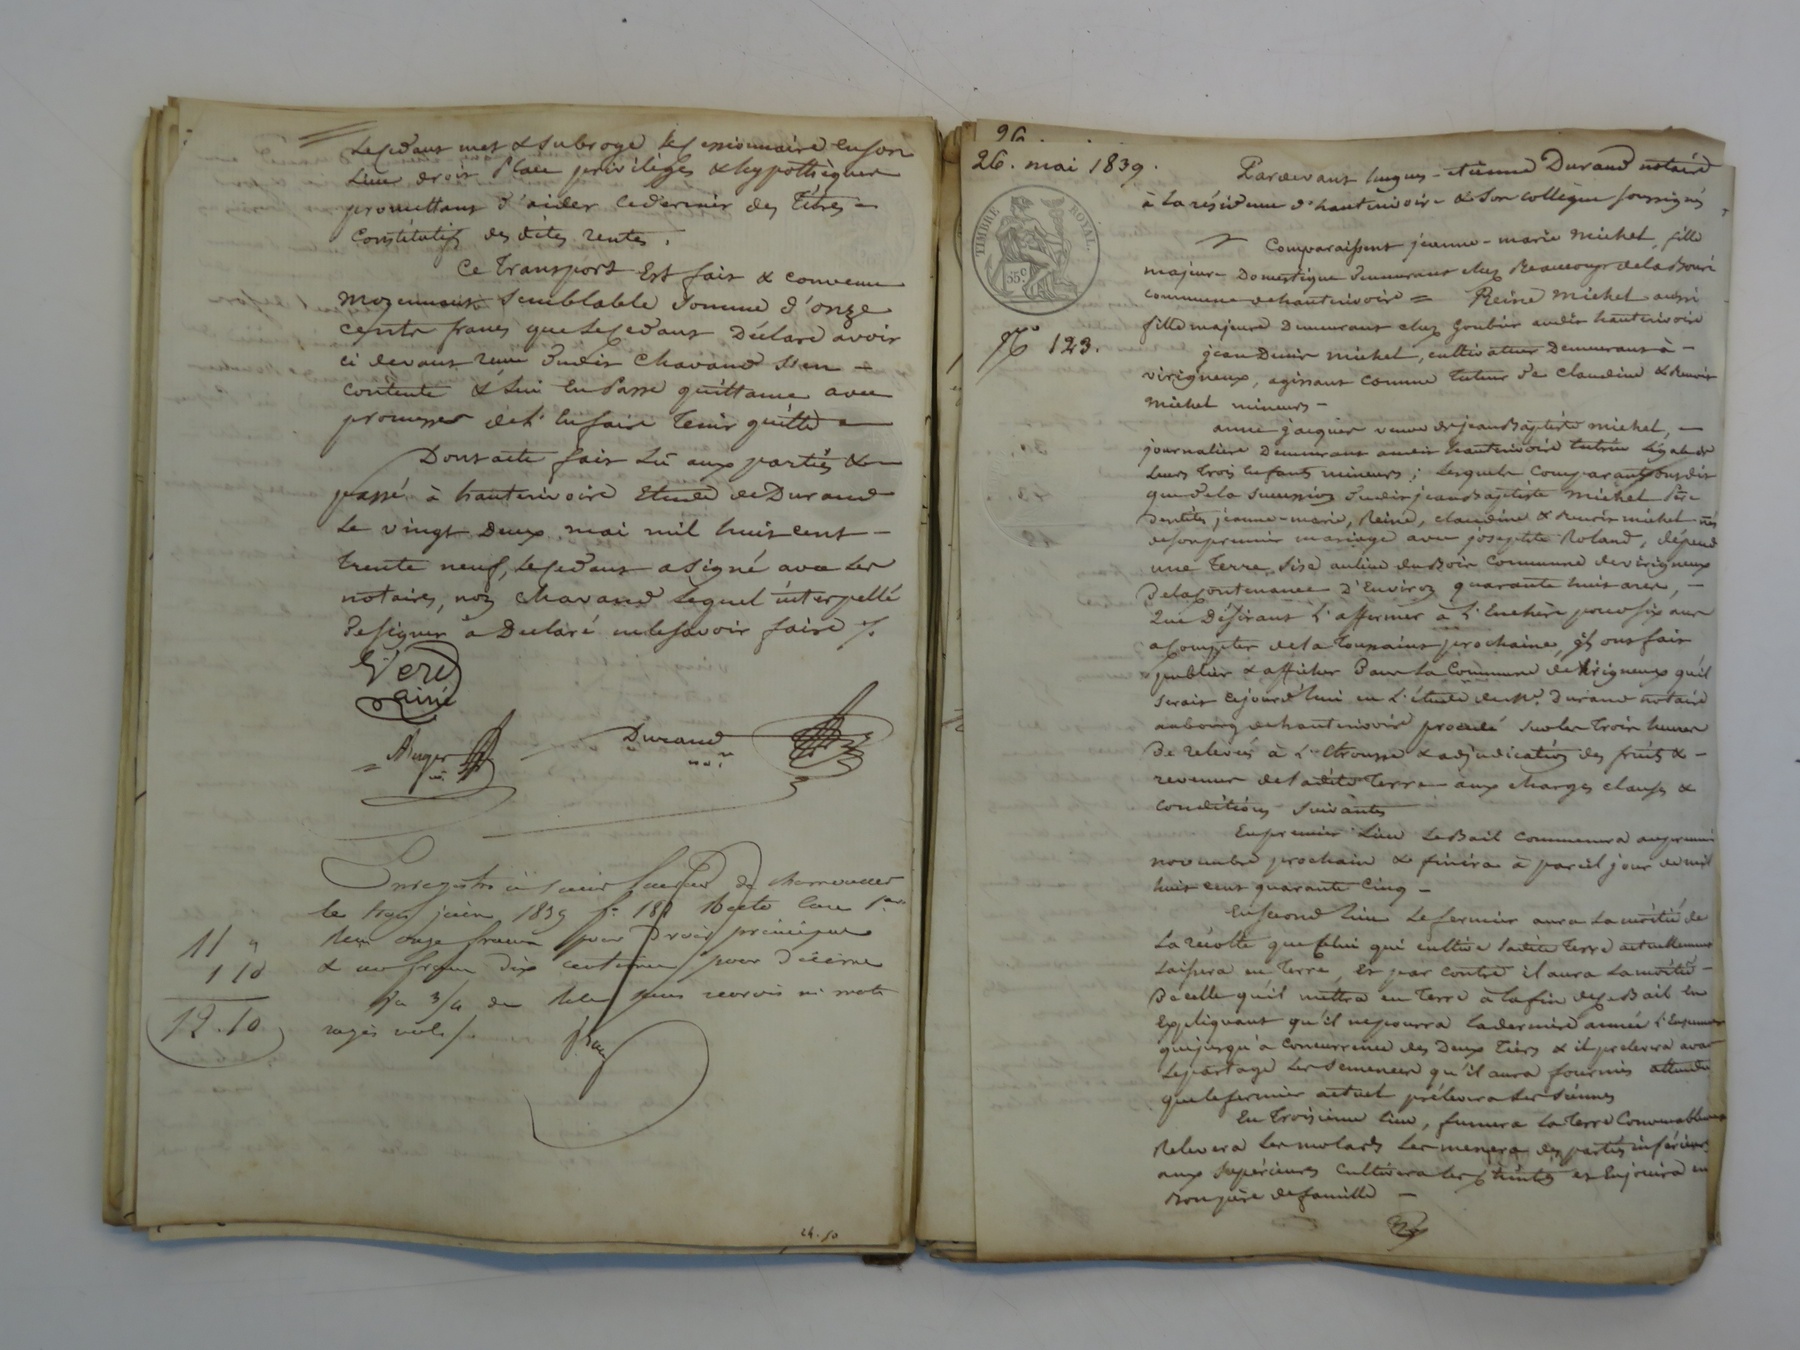 Le cédant met & subroge le cessionnaire en son
lieu droit Place privilèges & hypothèques
promettant d'aider ce dernier des Titres =
constitutifs des dites rentes.
Ce transport Est fait & convenu
moyennant semblable somme d'onze
cents francs que le cédant Déclare avoir
ci devant reçue dudit Chavand s'en =
contente & lui en Passe quittance avec
promesse de l'en faire tenir quitte =
Dont acte fait Lû aux parties & =
passé à hauterivoire Etude de Durand
Le vingt Deux mai mil huit cent =
trente neuf, Le cédant a signé avec les
notaires, non Chavand Lequel interpellé
de signer a Déclaré ne le savoir faire /.
Veri
ainé
Auger
nre
Durand
nre
Enregistré à
le trois juin 1839 fo 181 Recto Case 1re
Reçu onze francs pour Droit principal
& un franc dix centimes pour décime
sans renvois ni mots
rayés nuls /.
11 "
1 10
12.10
24.50
96
26. mai 1839.
TIMBRE ROYAL.
35c
No 123.
Pardevant hugues-étienne Durand notaire
à la résidence d'hauterivoire & son collègue soussignés
Comparaissent jeanne-marie Michel, fille
majeure Domestique Demeurant chez
commune de hauterivoire = Reine Michel aussi
fille majeure Demeurant chez Goubier audit hauterivoire
jean Denis Michel, cultivateur Demeurant à =
virigneux, agissant comme tuteur de Claudine & Benoit
Michel mineurs =
anne jacquier veuve de jean Baptiste Michel, =
journalière Demeurant audit hauterivoire tutrice légale de
Leurs trois Enfants mineurs; Lesquels Comparants ont dit
que de la succession dudit jean Baptiste Michel Père
desdits jeanne-marie, Reine, Claudine & Benoit Michel nés
de son premier mariage avec josephte Roland, dépend
une Terre, sise au lieu du Bois Commune de virigneux
De la Contenance D'Environ quarante huit ares, =
Que Désirant L'affermer à L'Enchère pour six ans
à Compter de la Toussaint prochaine, ils ont fait
publier & afficher Dans La Commune de Virigneux qu'il
serait cejourd'hui en L'étude de Me Durand notaire
au bourg de hauterivoire procédé sur les trois heures
De relevée à L'Etrousse & adjudication des fruits & =
revenus de ladite Terre = aux charges clauses &
conditions suivantes
En premier Lieu Le Bail commencera au premier
novembre prochain & finira à pareil jour de mil
huit cent quarante Cinq =
En second Lieu Le fermier aura La moitié de
La récolte que celui qui cultive ladite Terre actuellement
Laissera en Terre, Et par contre il aura La moitié =
De celle qu'il mettra en Terre à la fin de ce Bail En
Expliquant qu'il ne pourra La dernière année L'Ensemencer
que jusqu'à Concurrence des Deux Tiers & il prélevera avant
Le partage Les semences qu'il aura fournies attendu
que le fermier actuel prélevera les siennes
En Troisième Lieu, fumera La Terre Convenablement
Relevera Les molards Les menera des parties inférieures
aux supérieures Cultivera Les et En jouira en
Bon père de famille =